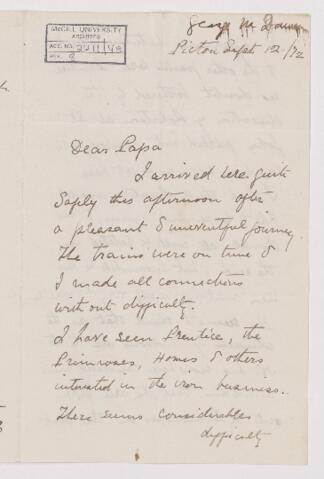 McGILL UNIVERSITY
ARCHIVES
ACC. NO. 2211/48
REF. 2
George M. Dawson
Pictou Sept. 12/72
Dear Papa
I arrived here quite
safely this afternoon after
a pleasant & uneventful journey.
The trains were on time &
I made all connections
without difficulty.
I have seen Prentice, the
Primroses, Homes & others
interested in the iron business.
There seems considerable
difficulty